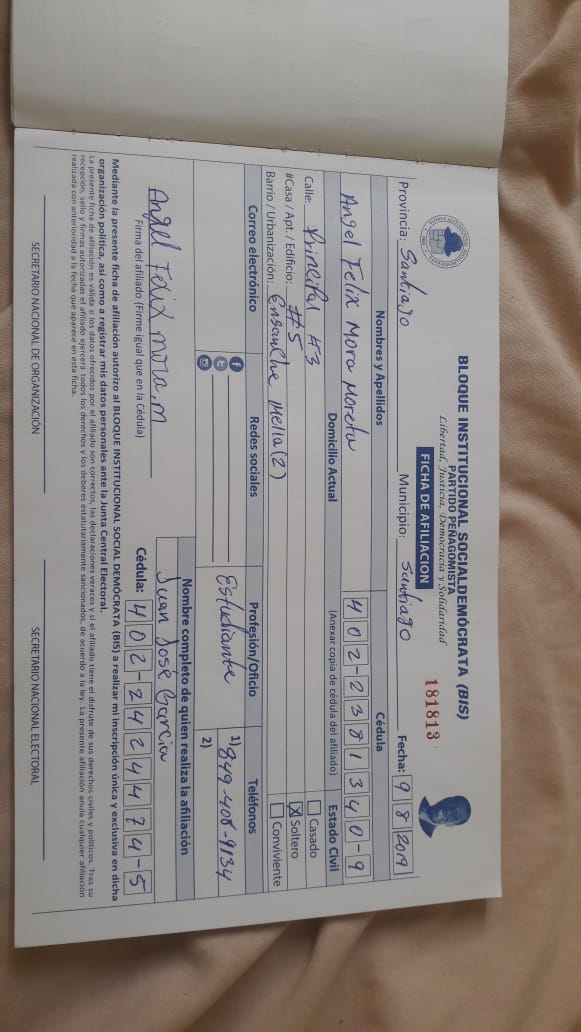 BLOQUE INSTITUCIONAL SOCIALDEMÓCRATA (BIS)
PARTIDO PEÑAGOMISTA
Libertad, Justicia, Democracia y Solidaridad
FICHA DE AFILIACION
181813
Provincia: Santiago Municipio: Santiago Fecha: 9 8 2019
Nombres y Apellidos Cédula Estado Civil
Angel Felix Mora Moreta 402-02381340-9 Casado
X Soltero
Conviviente
Domicilio Actual (Anexar copia de cédula del afiliado)
Calle: Principal #3
#Casa / Apt. / Edificio: #5
Barrio / Urbanización: Ensanche Mella (2)
Correo electrónico Redes sociales Profesión/Oficio Teléfonos
Estudiante 1) 849-408-9134
2)
Nombre completo de quien realiza la afiliación
Angel Felix mora.m Juan José Garcia
Firma del afiliado (Firme igual que en la Cédula) Cédula: 402-2424474-5
Mediante la presente ficha de afiliación autorizo al BLOQUE INSTITUCIONAL SOCIAL DEMÓCRATA (BIS) a realizar mi inscripción única y exclusiva en dicha
organización política, así como a registrar mis datos personales ante la Junta Central Electoral.
La presente ficha de afiliación es válida si los datos ofrecidos por el afiliado son correctos, las declaraciones veraces y si el afiliado tiene el disfrute de sus derechos civiles y políticos. Tras su
recepción, sello y firmas autorizadas el afiliado ejercerá todos los derechos y los deberes estatutariamente sancionados, de acuerdo a la ley. La presente afiliación anula cualquier afiliación
realizada con anterioridad a la fecha que aparece en esta ficha.
SECRETARIO NACIONAL DE ORGANIZACIÓN SECRETARIO NACIONAL ELECTORAL